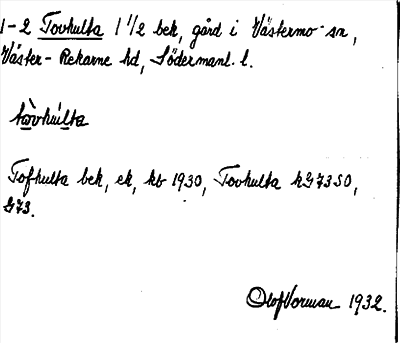 1-2 Tovhulta 1 1/2 bek, gård i Västermo sn,
Väster-Rekarne hd, Södermanl. l.
tòvhùlta
Tofhulta bek, ek, kb 1930, Tovhulta hG73SO,
G73.
Olof Vorman 1932.